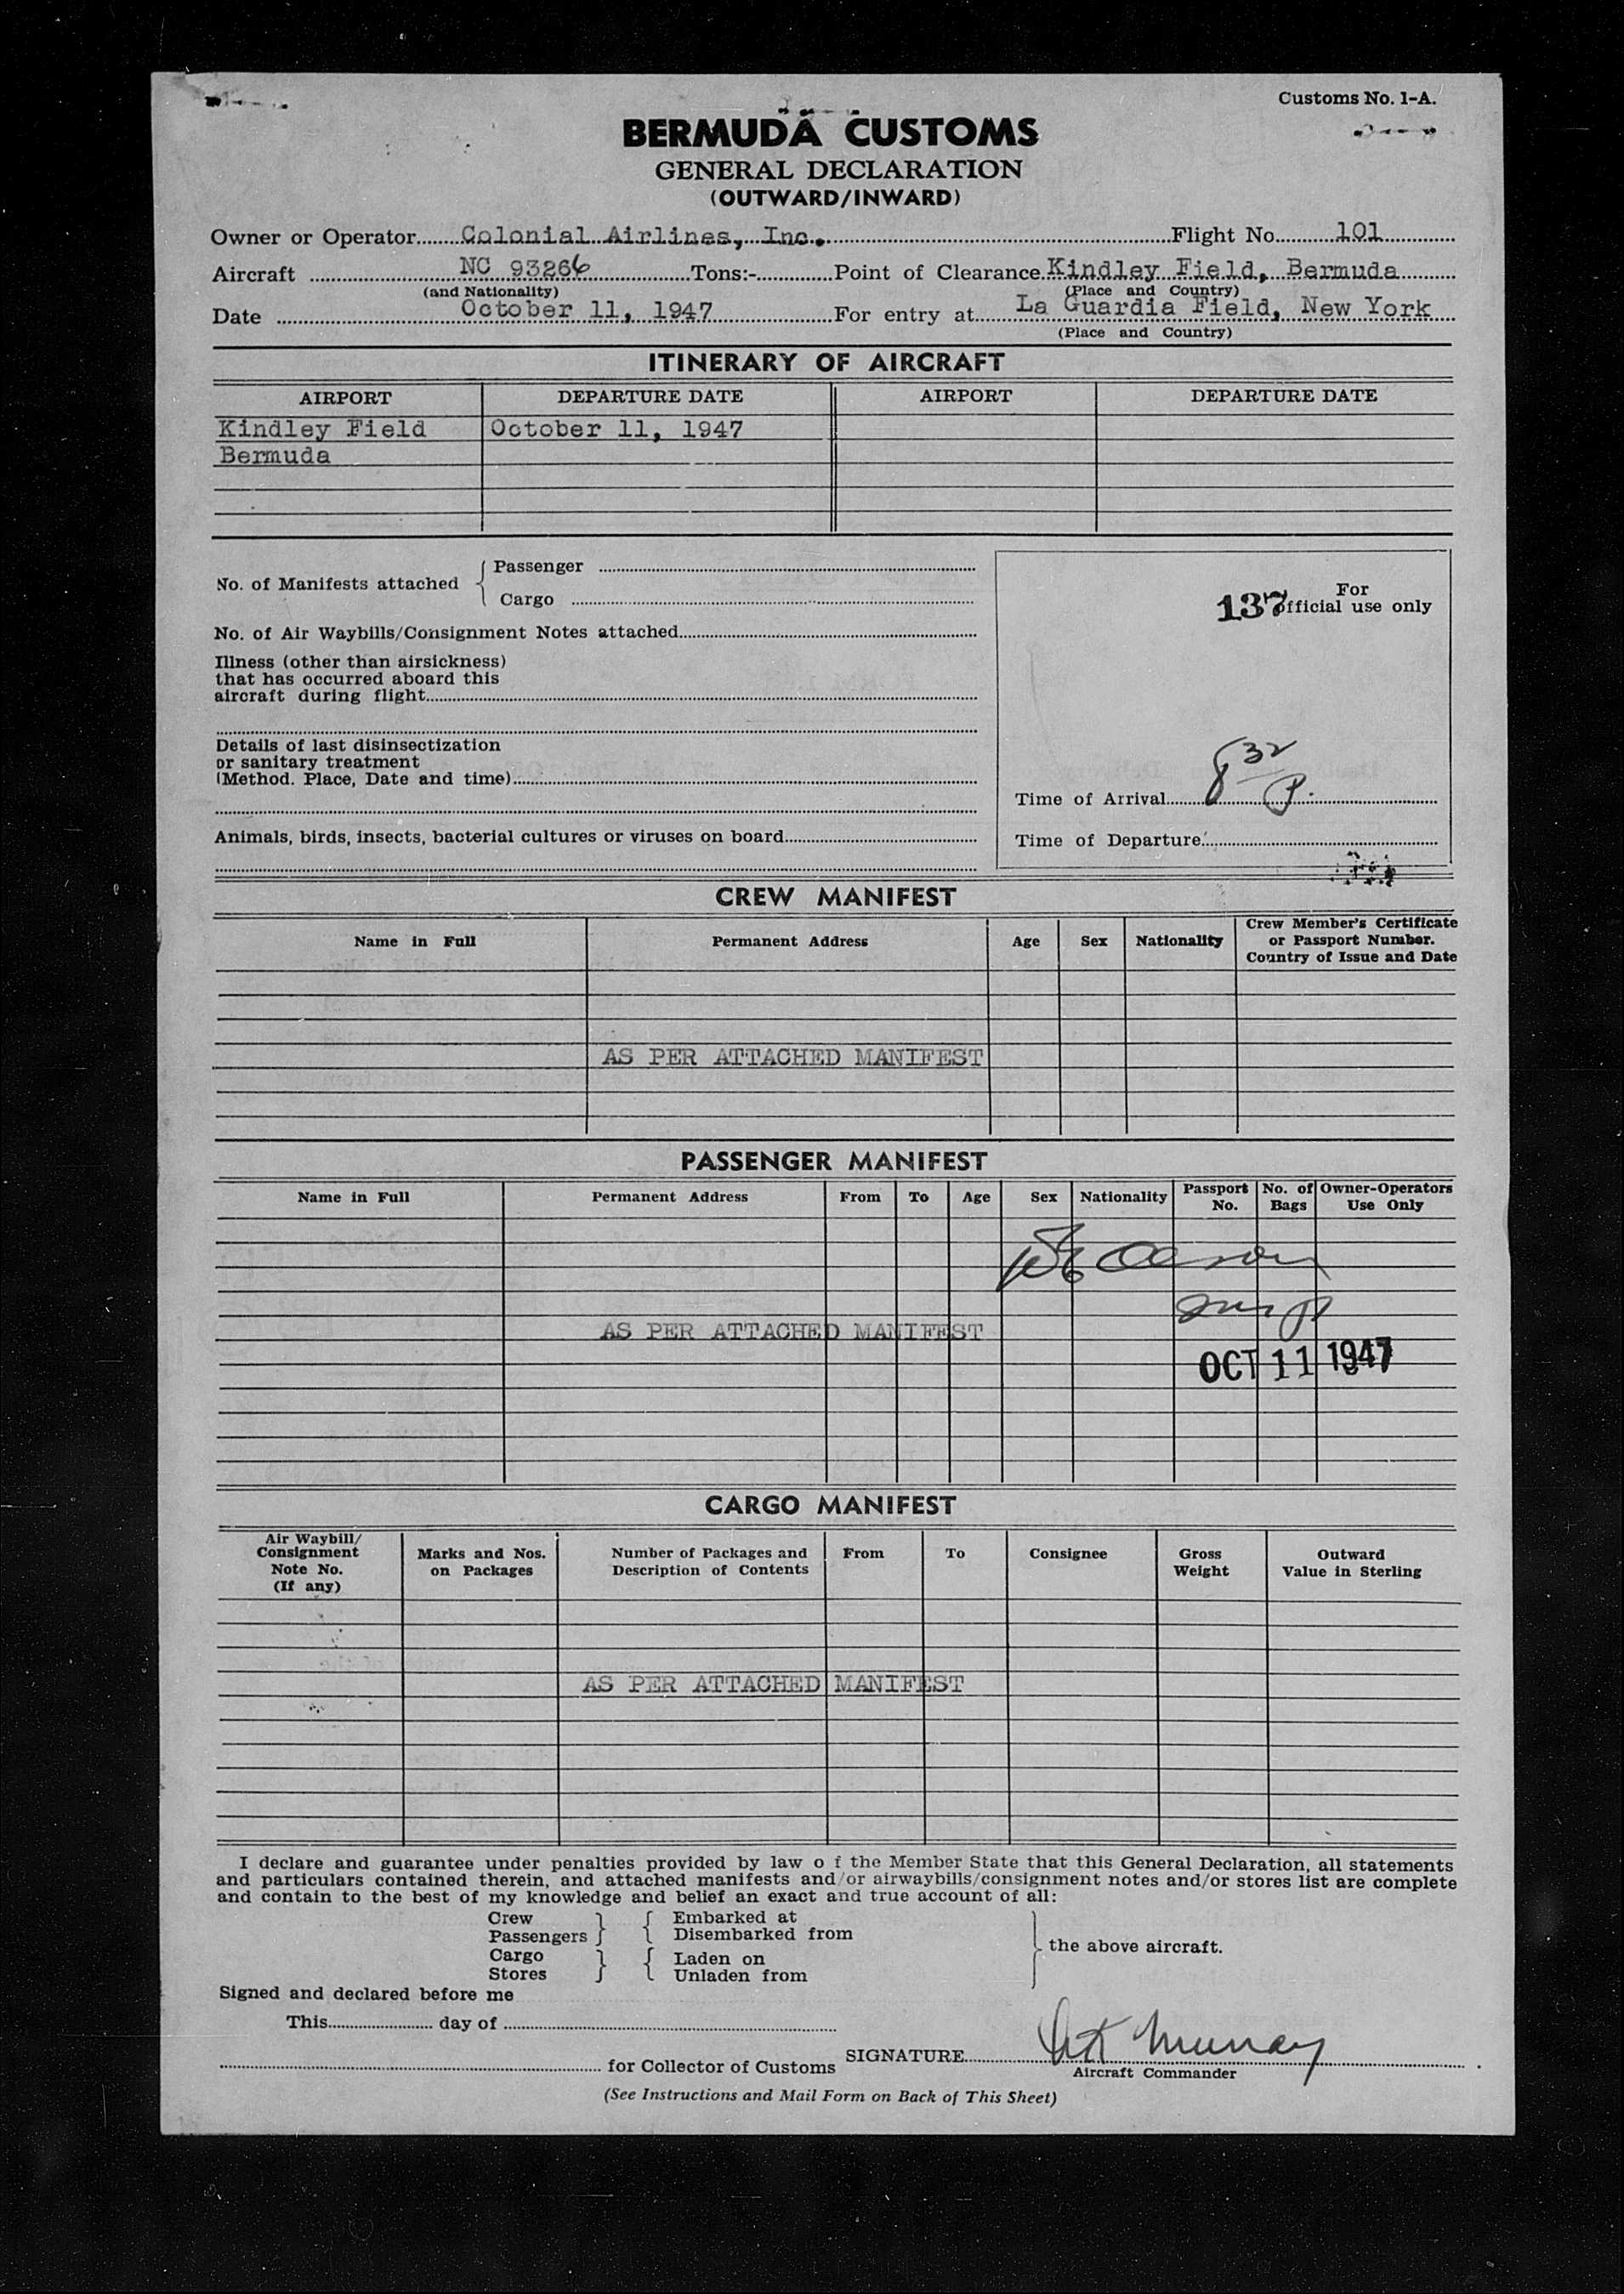 Customs No. 1-A.
BERMUDA CUSTOMS
GENERAL DECLARATION
(OUTWARD/INWARD)
Owner or Operator Colonial Airlines, Inc. Flight No. 101
Aircraft NC 93266 Tons:- Point of Clearance Kindley Field, Bermuda
(and Nationality) (Place and Country)
Date October 11, 1947 For entry at La Guardia Field, New York
(Place and Country)
ITINERARY OF AIRCRAFT
AIRPORT DEPARTURE DATE AIRPORT DEPARTURE DATE
Kindley Field October 11, 1947
Bermuda
No. of Manifests attached { Passenger
Cargo
137 For
official use only
No. of Air Waybills/Consignment Notes attached
Illness (other than airsickness)
that has occurred aboard this
aircraft during flight
Details of last disinsectization
or sanitary treatment
(Method. Place, Date and time)
Time of Arrival 8 32 P.
Animals, birds, insects, bacterial cultures or viruses on board
Time of Departure
CREW MANIFEST
Name in Full Permanent Address Age Sex Nationality Crew Member's Certificate
or Passport Number.
Country of Issue and Date
AS PER ATTACHED MANIFEST
PASSENGER MANIFEST
Name in Full Permanent Address From To Age Sex Nationality Passport No. No. of Bags Owner-Operators Use Only
AS PER ATTACHED MANIFEST
OCT 11 1947
CARGO MANIFEST
Air Waybill/
Consignment
Note No.
(If any)
Marks and Nos.
on Packages
Number of Packages and
Description of Contents
From To Consignee
Gross
Weight
Outward
Value in Sterling
AS PER ATTACHED MANIFEST
I declare and guarantee under penalties provided by law o f the Member State that this General Declaration, all statements
and particulars contained therein, and attached manifests and/or airwaybills/consignment notes and/or stores list are complete
and contain to the best of my knowledge and belief an exact and true account of all:
Crew } { Embarked at
Passengers } { Disembarked from
Cargo } { Laden on
Stores } { Unladen from
} the above aircraft.
Signed and declared before me
This day of
for Collector of Customs SIGNATURE Murray
Aircraft Commander
(See Instructions and Mail Form on Back of This Sheet)